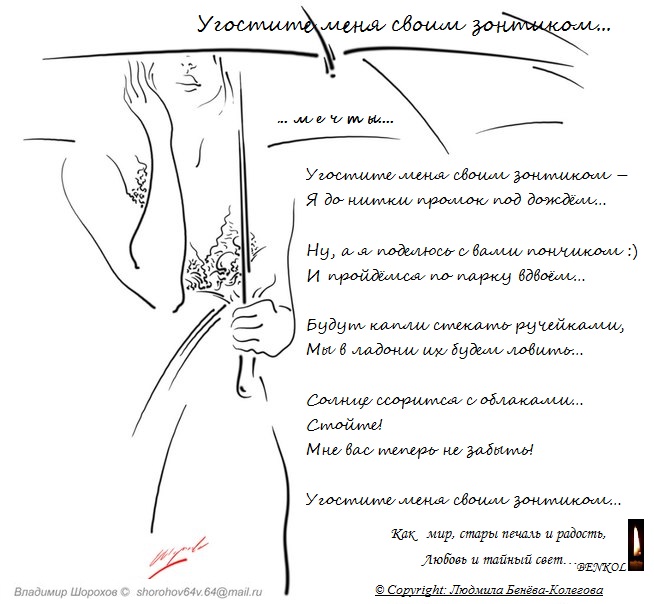 Угостите меня своим зонтиком...
... м е ч т ы....
Угостите меня своим зонтиком –
Я до нитки промок под дождём...
Ну, а я поделюсь с вами пончиком :)
И пройдёмся по парку вдвоём...
Будут капли стекать ручейками,
Мы в ладони их будем ловить...
Солнце ссорится с облаками...
Стойте!
Мне вас теперь не забыть!
Угостите меня своим зонтиком...
Как мир, стары печаль и радость,
Любовь и тайный свет...
BENKOL
Владимир Шорохов © shorohov64v.64@mail.ru
© Copyright: Людмила Бенёва-Колегова